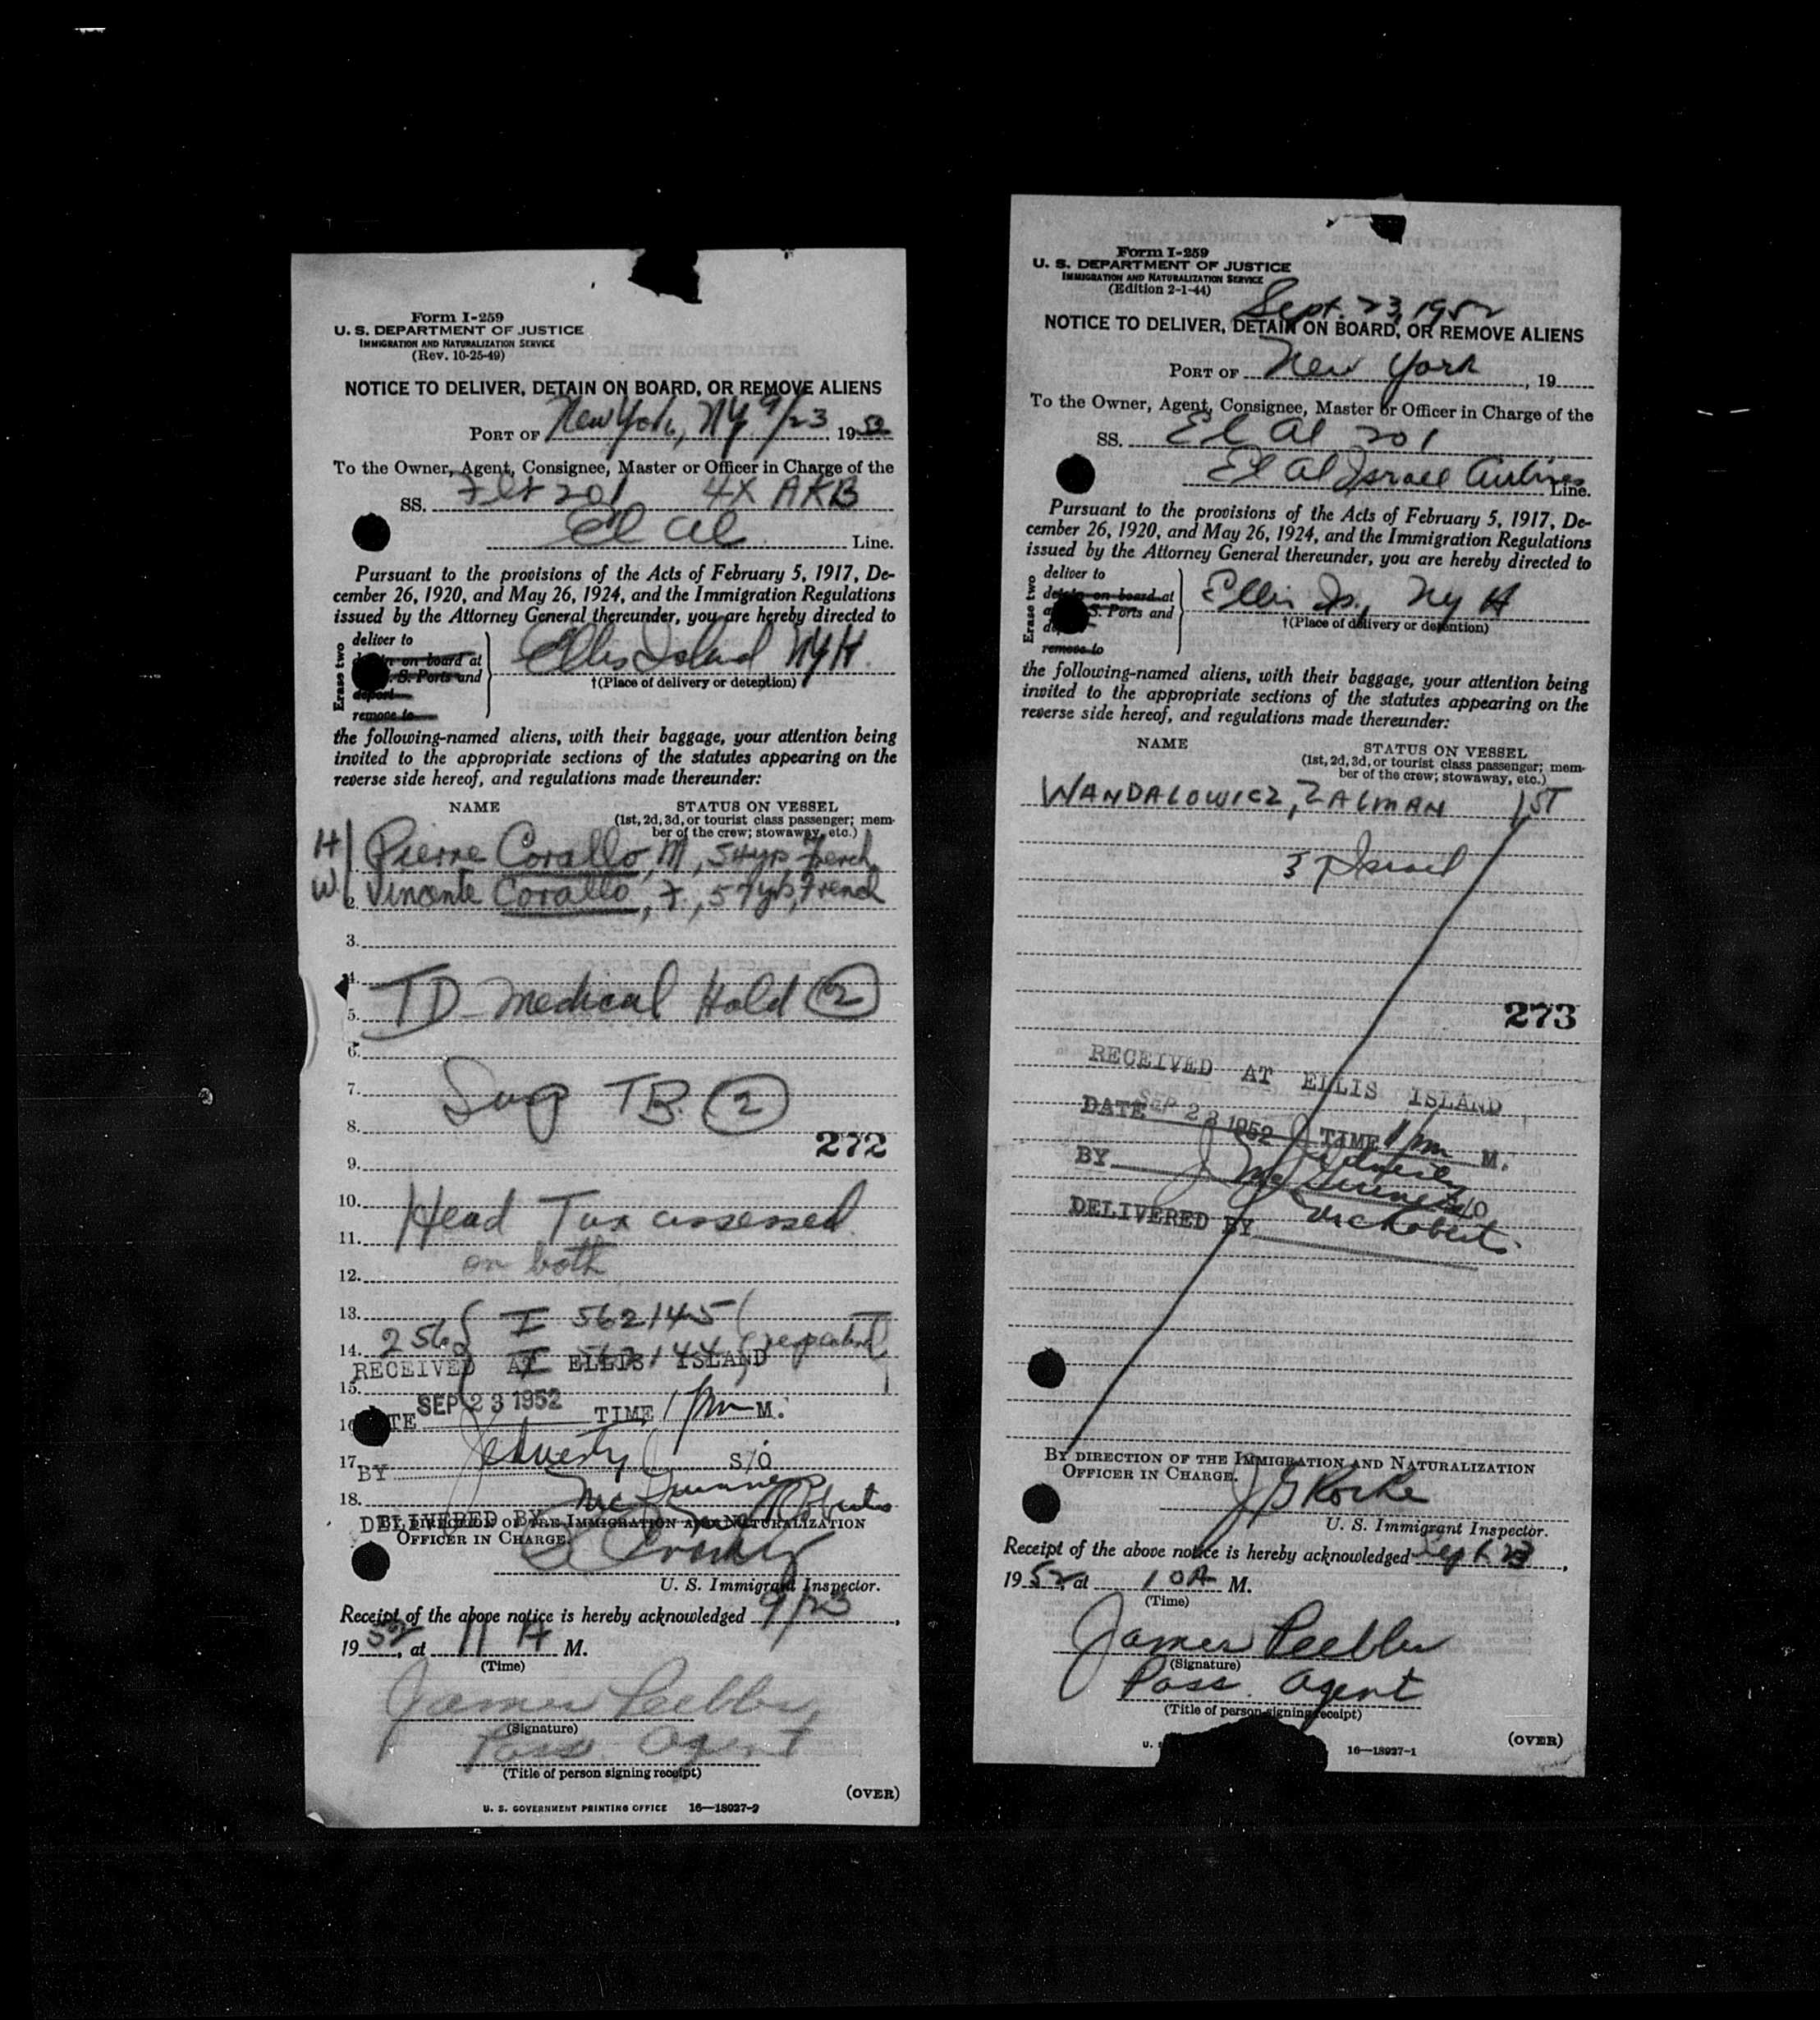 Form I-259
U. S. DEPARTMENT OF JUSTICE
IMMIGRATION AND NATURALIZATION SERVICE
(Rev. 10-25-49)
NOTICE TO DELIVER, DETAIN ON BOARD, OR REMOVE ALIENS
PORT OF New York, NY 9/23 1952
To the Owner, Agent, Consignee, Master or Officer in Charge of the
SS. Flt 201 4X AKB
El Al Line.
Pursuant to the provisions of the Acts of February 5, 1917, De-
cember 26, 1920, and May 26, 1924, and the Immigration Regulations
issued by the Attorney General thereunder, you are hereby directed to
Erase two
deliver to
on board at
S. Ports and
deport
remove to
Ellis Island NYH
†(Place of delivery or detention)
the following-named aliens, with their baggage, your attention being
invited to the appropriate sections of the statutes appearing on the
reverse side hereof, and regulations made thereunder:
NAME STATUS ON VESSEL
(1st, 2d, 3d, or tourist class passenger; mem-
ber of the crew; stowaway, etc.)
H Pierre Corallo, M, 54 yrs French
W 2. Vincente Corallo, F., 57 yrs, French
3.
4.
5. TD- Medical Hold (2)
6.
7. Susp TB. (2)
8.
272
9.
10. Head Tax assessed
11.
on both
12.
13. I 562145
14. 256
RECEIVED AT ELLIS ISLAND
15.
SEP 23 1952 TIME 1 pm M.
17.
BY S/O
18.
DELIVERED BY
BY DIRECTION OF THE IMMIGRATION AND NATURALIZATION
OFFICER IN CHARGE.
U. S. Immigrant Inspector.
Receipt of the above notice is hereby acknowledged 9/23,
1952, at 11 A M.
(Time)
James Peebles
(Signature)
Pass. Agent
(Title of person signing receipt)
(OVER)
U. S. GOVERNMENT PRINTING OFFICE 16—18927-2
Form I-259
U. S. DEPARTMENT OF JUSTICE
IMMIGRATION AND NATURALIZATION SERVICE
(Edition 2-1-44)
Sept. 23, 1952
NOTICE TO DELIVER, DETAIN ON BOARD, OR REMOVE ALIENS
PORT OF New York, 19
To the Owner, Agent, Consignee, Master or Officer in Charge of the
SS. El Al 201
El Al Israel Airlines Line.
Pursuant to the provisions of the Acts of February 5, 1917, De-
cember 26, 1920, and May 26, 1924, and the Immigration Regulations
issued by the Attorney General thereunder, you are hereby directed to
Erase two
deliver to
detain on board at
S. Ports and
remove to
Ellis Is., NY H
†(Place of delivery or detention)
the following-named aliens, with their baggage, your attention being
invited to the appropriate sections of the statutes appearing on the
reverse side hereof, and regulations made thereunder:
NAME STATUS ON VESSEL
(1st, 2d, 3d, or tourist class passenger; mem-
ber of the crew; stowaway, etc.)
WANDALOWICZ, ZALMAN 1ST
Israel
273
RECEIVED AT ELLIS ISLAND
DATE SEP 23 1952 TIME 1 pm M.
BY S/O
DELIVERED BY
BY DIRECTION OF THE IMMIGRATION AND NATURALIZATION
OFFICER IN CHARGE.
U. S. Immigrant Inspector.
Receipt of the above notice is hereby acknowledged Sept 23,
1952, at 10A M.
(Time)
James Peebles
(Signature)
Pass. Agent
(Title of person signing receipt)
(OVER)
16—18927-1